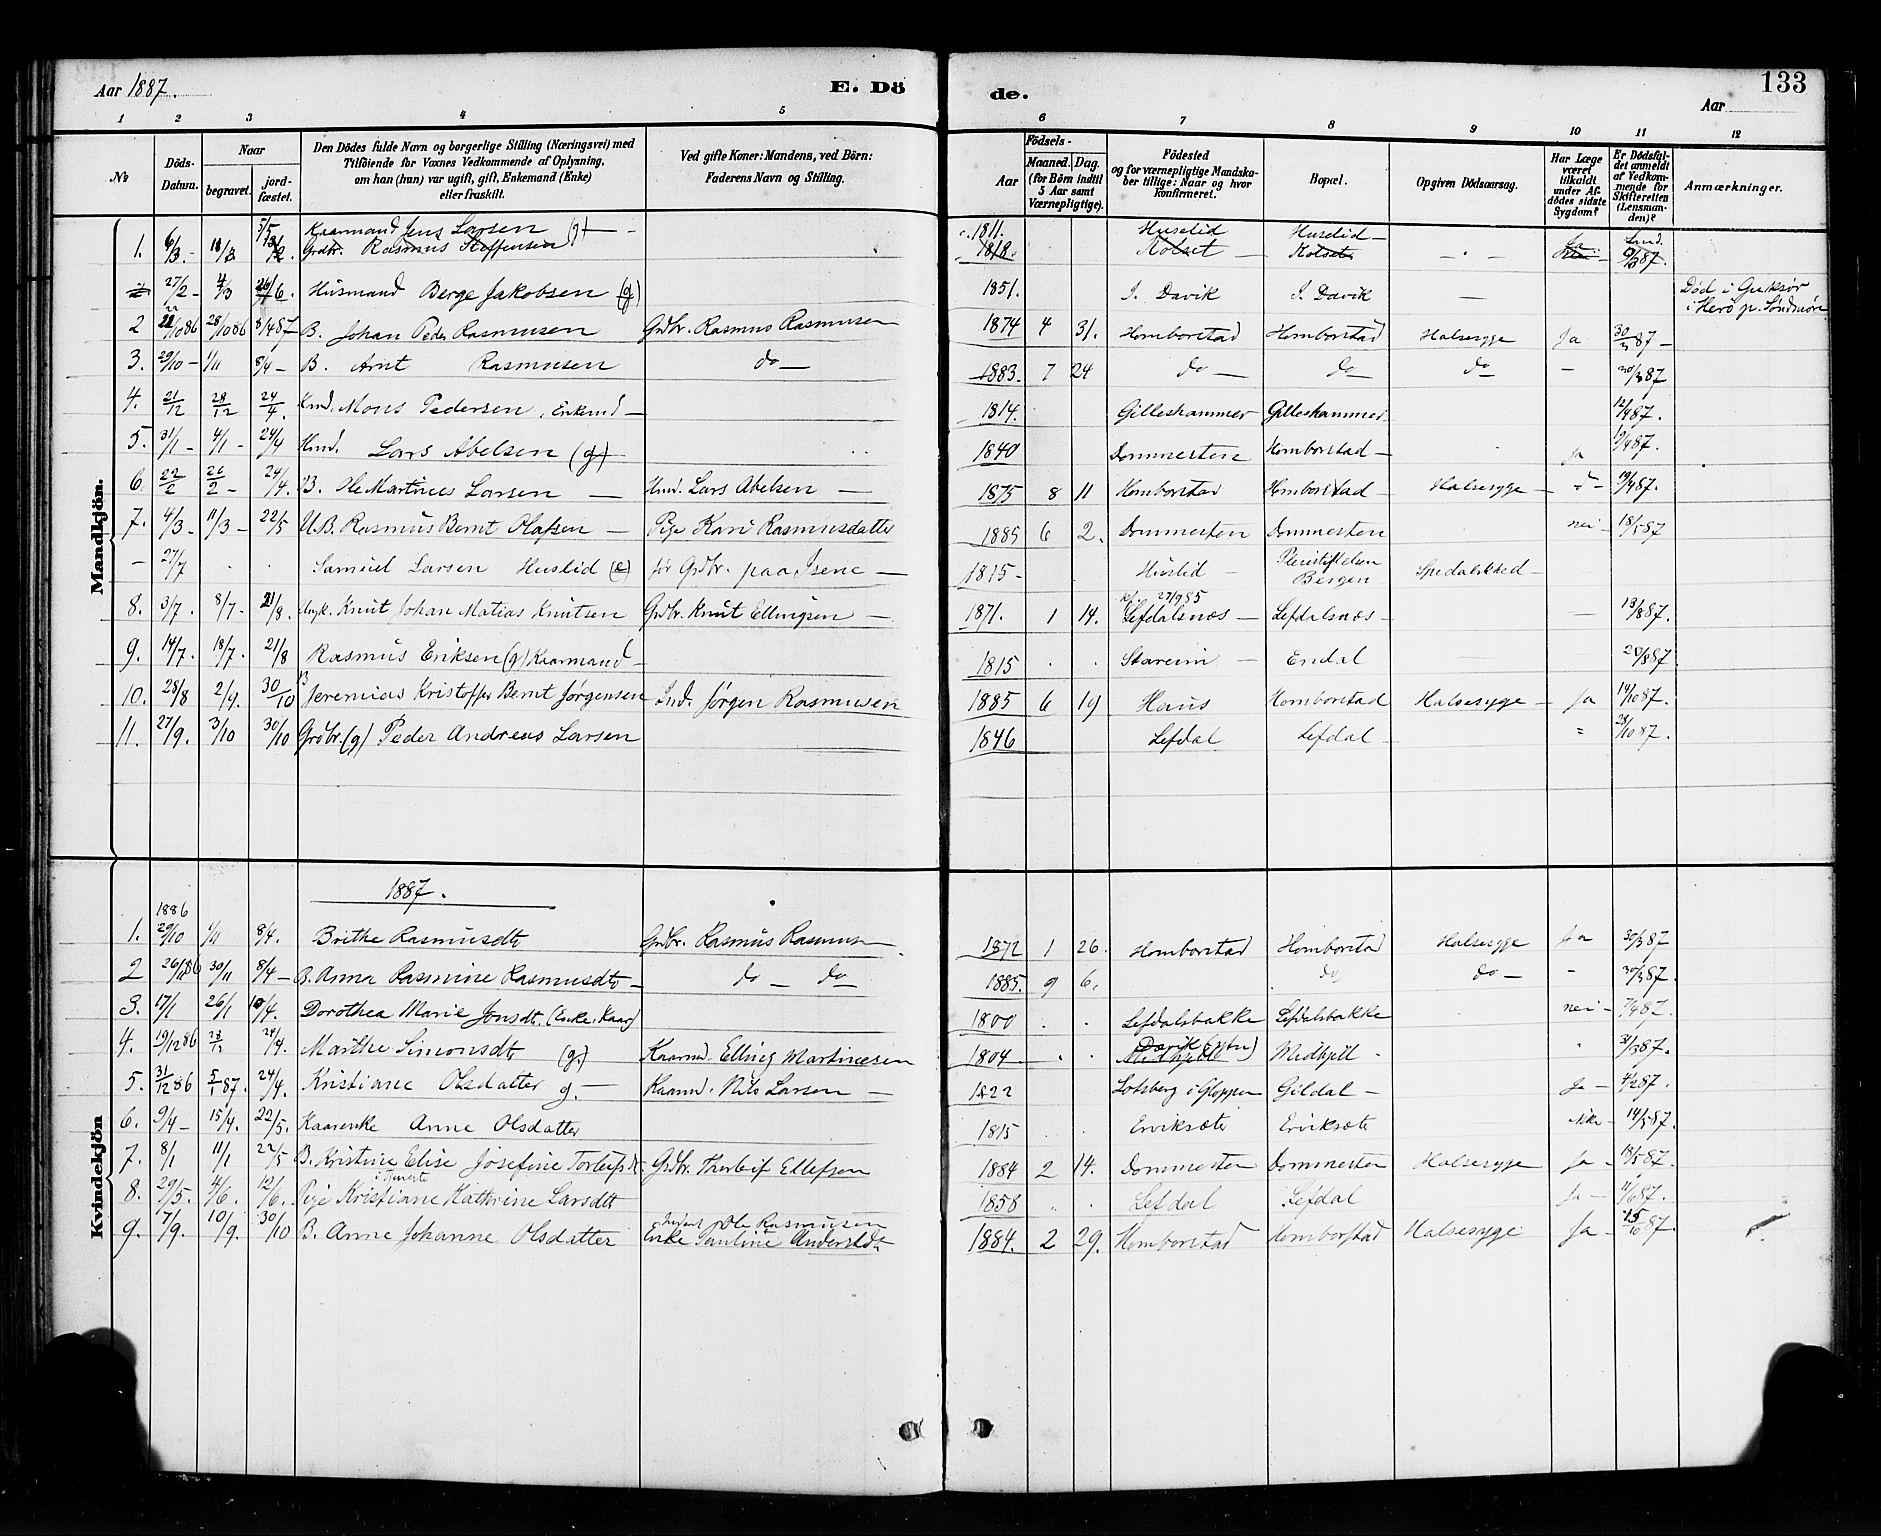 Aar 1887.
E. Dö
de.
133
Aar
1 2 3 4 5 6 7 8 9 10 11 12
No
Döds-Datum.
Naar
begravet.
jord-fæstet.
Den Dödes fulde Navn og borgerlige Stilling (Næringsvei) med
Tilföiende for Voxnes Vedkommende af Oplysning,
om han (hun) var ugift, gift, Enkemand (Enke)
eller fraskilt.
Ved gifte Koner: Mandens, ved Börn:
Faderens Navn og Stilling.
Födsels-
Aar
Maaned. Dag.
(for Börn indtil
5 Aar samt
Værnepligtige).
Födested
og for værnepligtige Mandska-
ber tillige: Naar og hvor
konfirmeret.
Bopæl.
Opgiven Dödsaarsag.
Har Læge
været
tilkaldt
under Af-
dödes sidste
Sygdom?
Er Dödsfal-
det anmeldt
af Vedkom-
mende for
Skifteretten
(Lensman-
den)?
Anmærkninger.
Mandkjön.
Kaarmand Jens Larsen (g) — 1811. Huselid Huselid — Ja
1. Grdbr. Rasmus Steffensen 1818. Kolset — Kolset
27/2 — 4/3 26/6. Husmand Berge Jakobsen (g) 1851. I. Davik I. Davik — Död i
i Herö p. Söndmöre
2 28/10 86 8/4 87 B. Johan Peder Rasmusen Grdbr. Rasmus Rasmusen 1874 4 31. Homborstad Homborstad Halsesyge Ja 30/3 87 —
3. 29/10 — 1/11 8/4 — B. Arnt Rasmusen do — 1883. 7 24 do — do do — 30/3 87
4. 21/12 28/12 24/4. Mons Pedersen, Enkmd — 1814. Gilleshammer Gilleshammer 12/4 87.
5. 31/1 — 4/1 — 24/4 Hmd. Lars Abelsen (g) 1840 Dommersten Homborstad — Ja
6. 22/2 26/2 — 24/4. B. Ole Martines Larsen — Hmd. Lars Abelsen — 1875 8 11 Homborstad Homborstad — Halsesyge —
7. 4/3 — 11/3 — 22/5 U.B. Rasmus Bernt Olafsen — Pige Kari Rasmusdatter 1885 6 2. Dommersten Dommersten nei — 18/5 87
— 27/7 Samuel Larsen Huslid (e) för Grdbr. paa Isene — 1815 — Huslid — Pleiestiftelsen
Bergen Spedalskhed —
8. 3/7. 8/7 — 21/8. Ungk. Knut Johan Matias Knutsen Grdbr. Knut Ellingsen — 1871. 1 14. kf. 27/9 85
Lefdalsnæs — Lefdalsnæs — — 13/8 87.
9. 14/7. 18/7. 21/8 Rasmus Eriksen (g) Kaarmand — 1815 Stareim — Endal — 20/8 87
10. 28/8 2/9. 30/10 B Jeremias Kristoffer Bernt Jørgensen Ind. Jørgen Rasmusen 1885 6 19 Haus Homborstad Halsesyge — Ja 14/10 87.
11. 27/9. 3/10 30/10 Grdbr. (g) Peder Andreas Larsen 1846 Lefdal Lefdal — 28/10 87.
Kvindekjön
1887.
1886
1. 29/10 1/11 8/4. Brithe Rasmusdtr Grdbr. Rasmus Rasmusen 1872 1 26. Homborstad Homborstad Halsesyge Ja 30/3 87
2 26/11 86 30/11 8/4 — B. Anna Rasmine Rasmusdtr — do — do 1885. 9 6. do do — — 30/3 87.
3. 17/1 26/1 10/4. Dorothea Marie Jonsdtr. (Enke. Kaar) 1800 Lefdalsbakke Lefdalsbakke nei — 7/4 87.
4. 19/12 86 28/12 24/4. Marthe Simonsdtr (g.) Kaarmd. Elling Martinusen 1804 Davik (ytre)
Midhjell Midhjell 31/3 87.
5. 31/12 86 5/1 87. 24/4. Kristiane Olsdatter g. — Kaarmd. Nils Larsen — 1822 Lotsberg i Gloppen Gildal — Ja — 4/2 87.
6. 9/4 — 15/4. 22/5. Kaarenke Anne Olsdatter 1815 Erviksæter Erviksæter 14/5 87.
7. 8/1 11/1 22/5 B. Kristine Elise Josefine Torleifsdtr Grdbr. Thorleif Ellefsen 1884 2 14. Dommersten Dommersten Halsesyge Ja — 18/5 87.
8. 29/5. 4/6. 12/6. i Tjeneste
Pige Kristiane Kathrine Larsdtr 1858 Lefdal Lefdal Ja — 11/6 87.
9. 7/9. 10/9. 30/10 B. Anne Johanne Olsdatter Inderst Ole Rasmusen
Enke Pauline Andersdtr 1884. 2 29. Homborstad Homborstad Halsesyge Ja — 15/10 87.